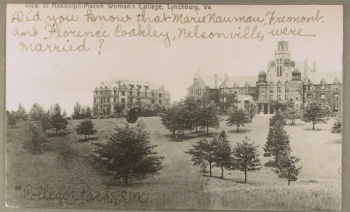 View of Randolph-Macon Woman's College, Lynchburg, Va
Did you know that Marie Nauman, Fremont.
and Florence Coakley, Nelsonville, were
married?
"College Park, Va